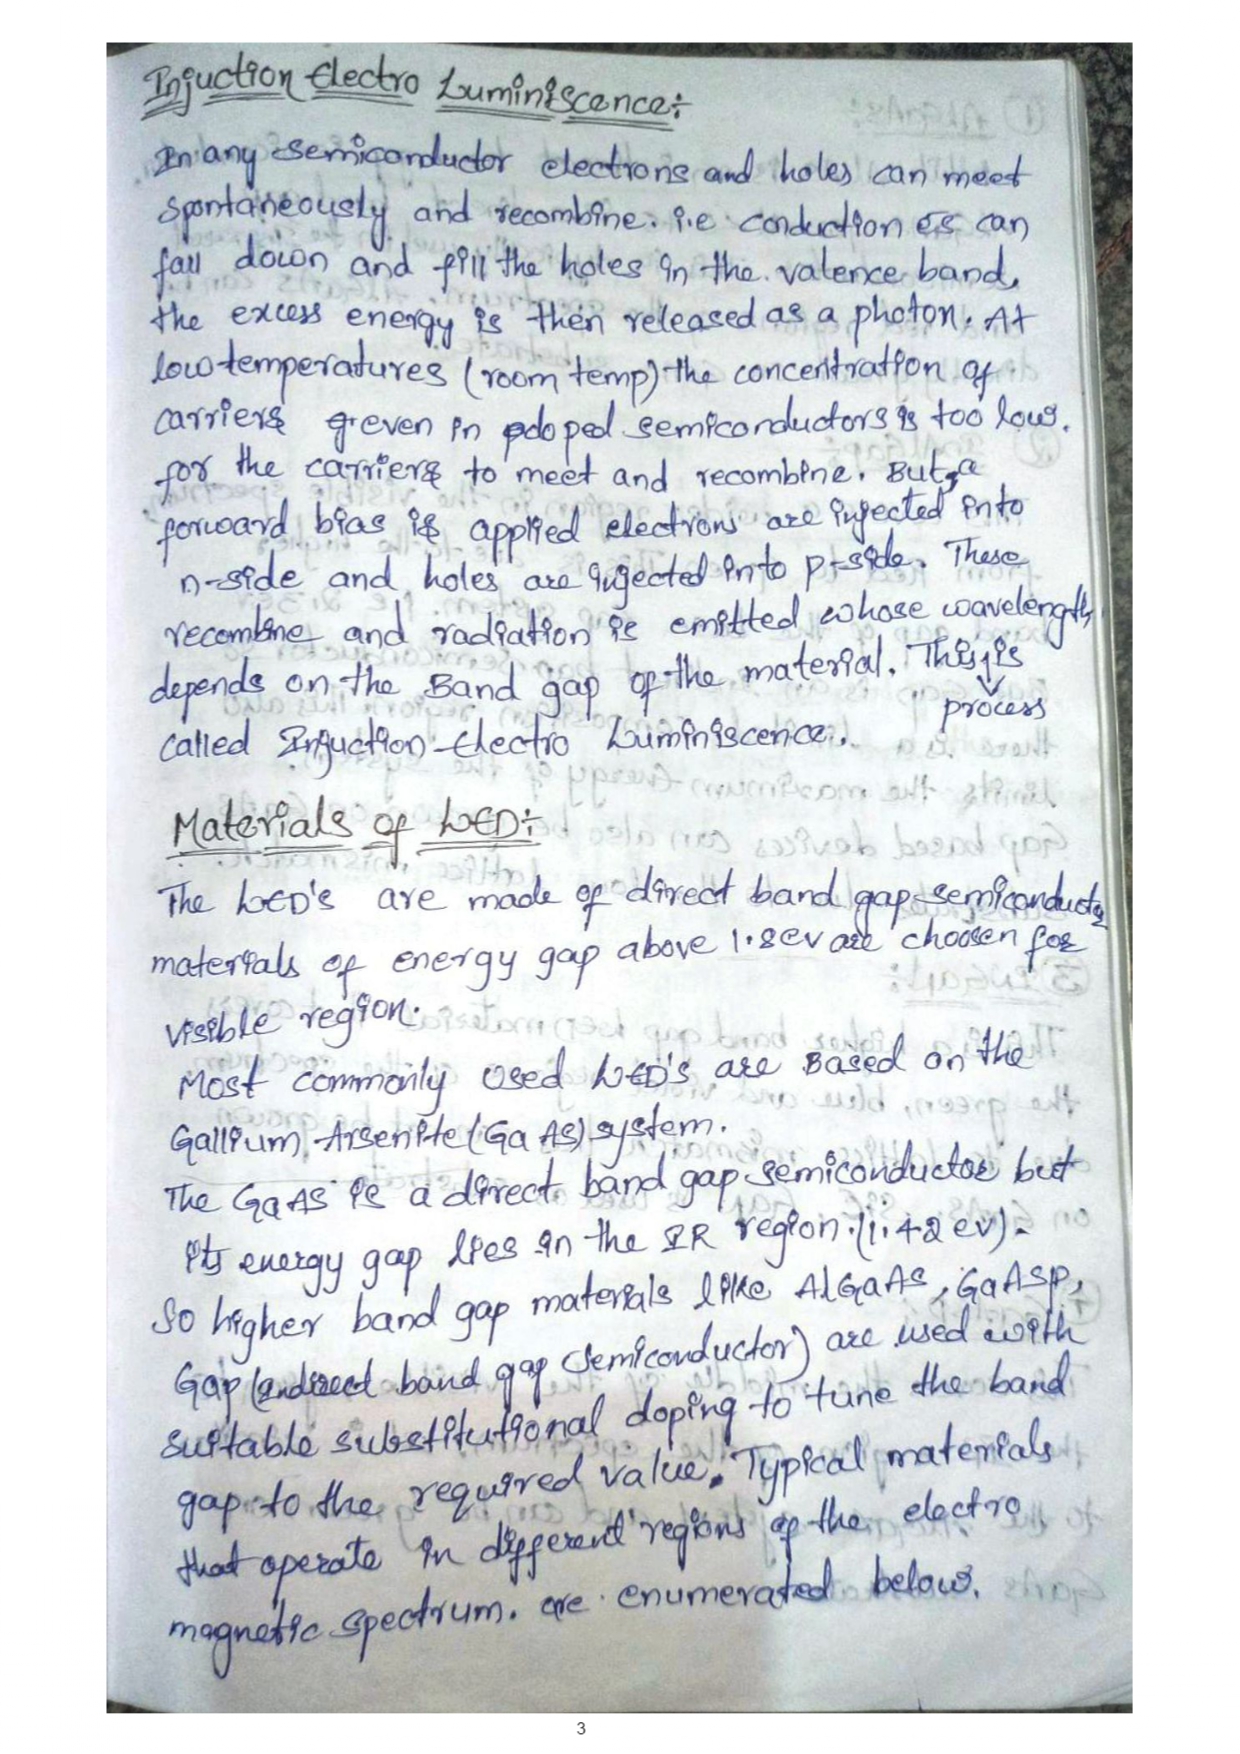 Injuction Electro Luminiscence:
In any semiconductor electrons and holes can meet
spontaneously and recombine. i.e conduction es can
fall down and fill the holes in the valence band,
the excess energy is then released as a photon. At
low temperatures (room temp) the concentration of
carriers even in doped semiconductors is too low.
for the carriers to meet and recombine. But, a
forward bias is applied electrons are injected into
n-side and holes are injected into p-side. These
recombine and radiation is emitted whose wavelength
depends on the Band gap of the material. This is
process
called Injuction Electro Luminiscence.
Materials of LED:
The LED's are made of direct band gap semiconductor
materials of energy gap above 1.8ev are choosen for
visible region.
Most commonly used LED's are Based on the
Gallium Arsenite (GaAs) system.
The GaAs is a direct band gap semiconductor but
its energy gap lies in the IR region.(1.42 ev).
So higher band gap materials like AlGaAs, GaAsp,
Gap (Indirect band gap semiconductor) are used with
suitable substitutional doping to tune the band
gap to the required value. Typical materials
that operate in different regions of the electro
magnetic spectrum. are enumerated below.
3